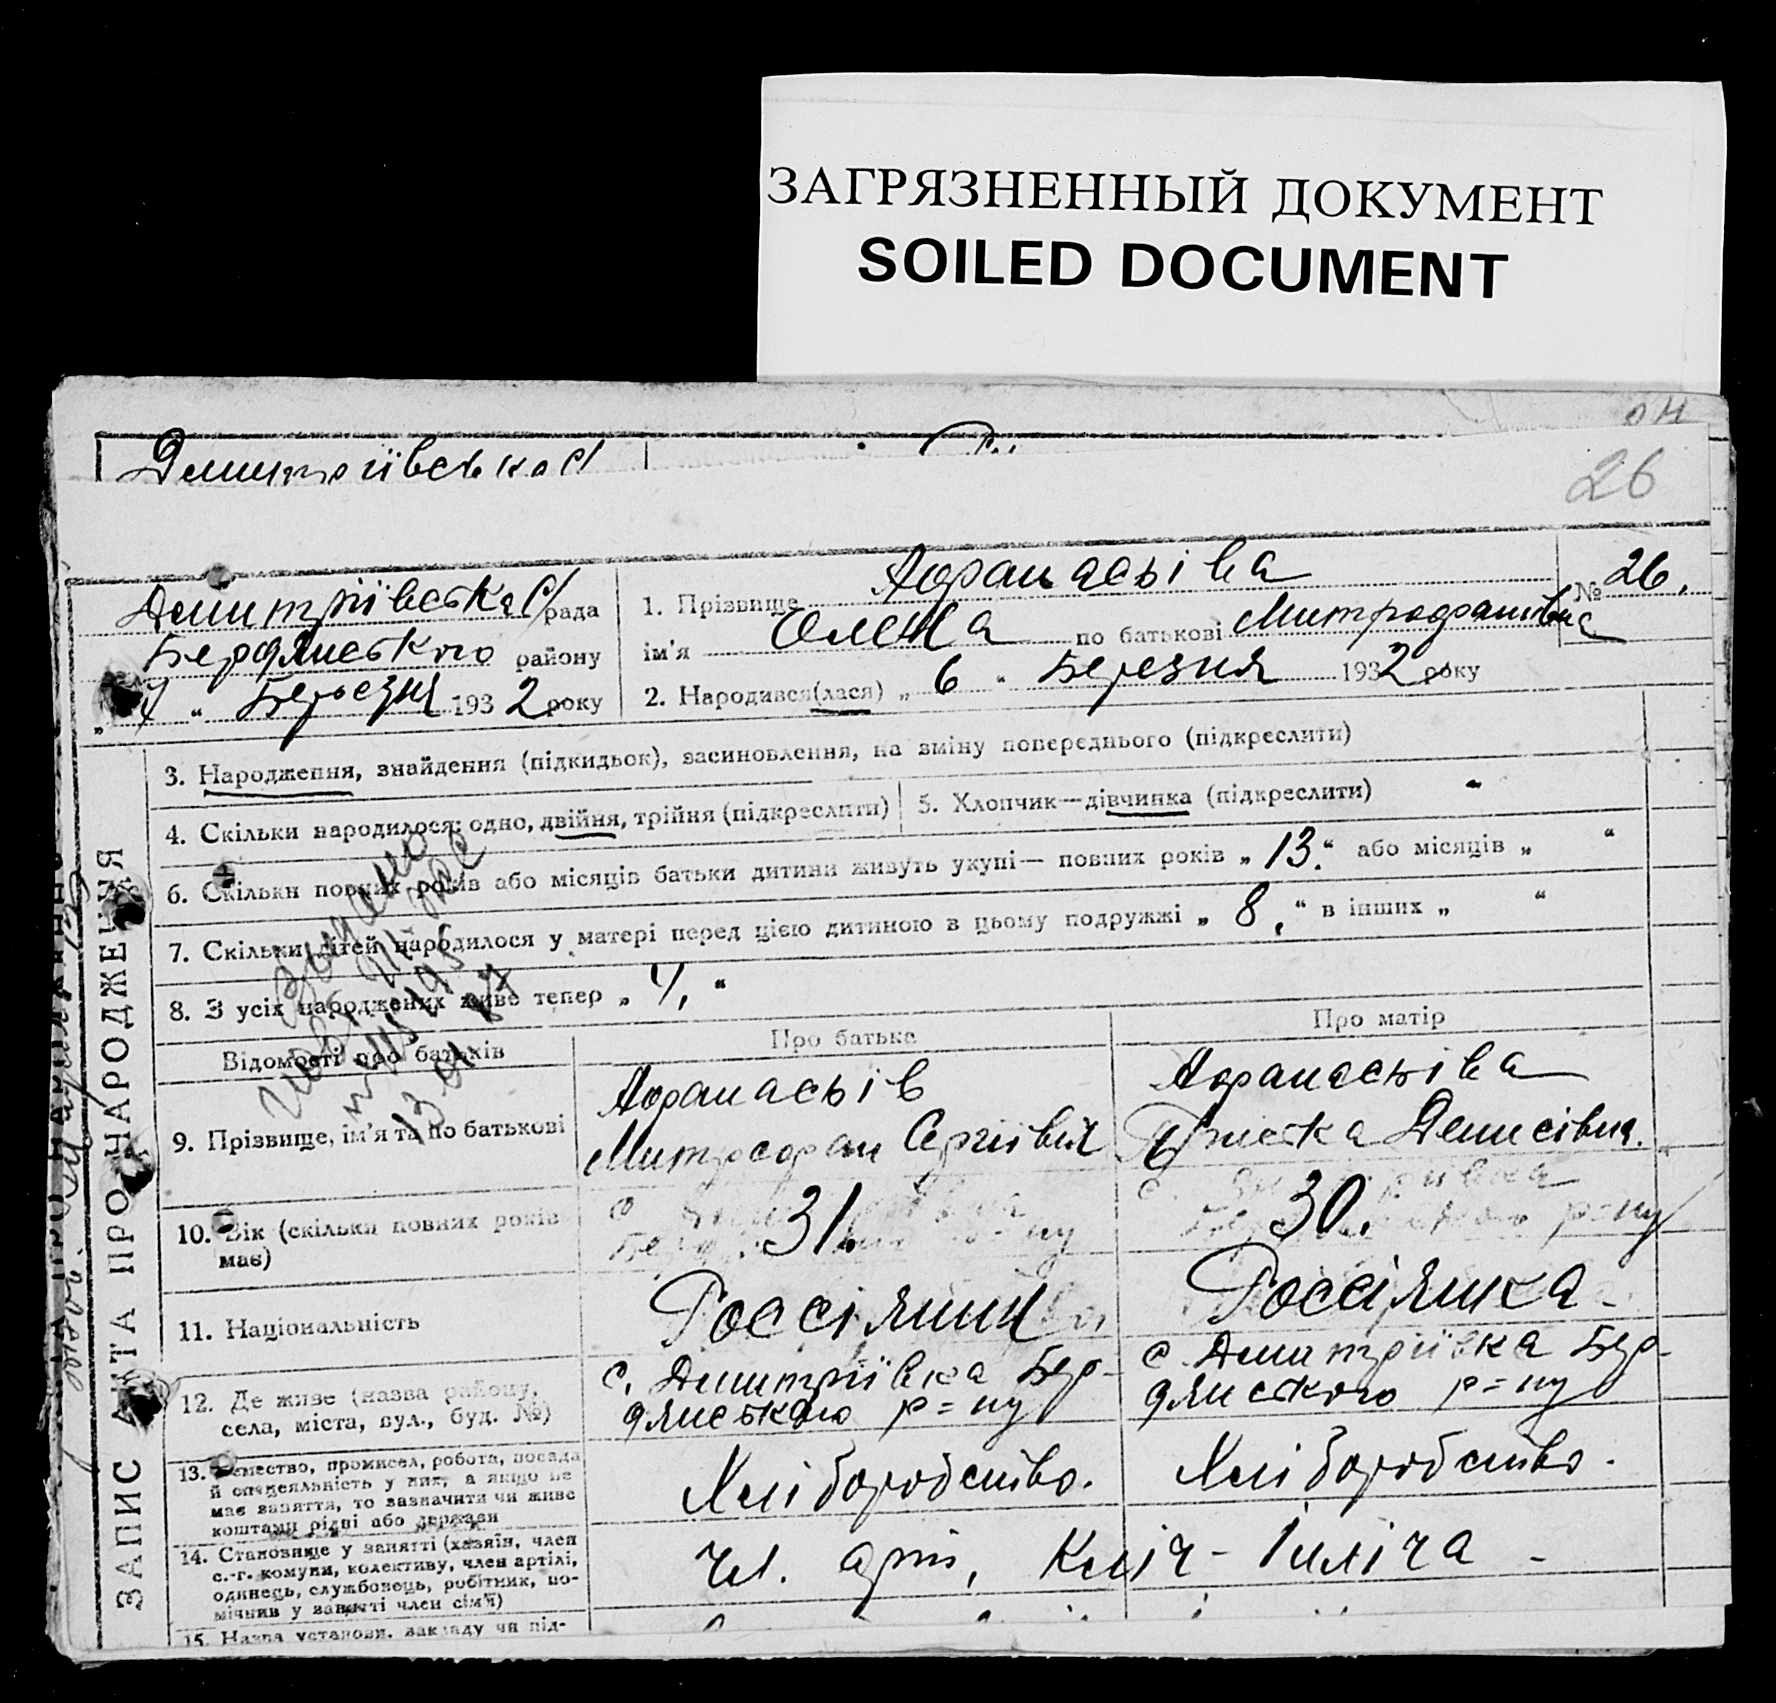 ЗАГРЯЗНЕННЫЙ ДОКУМЕНТ
SOILED DOCUMENT
26
Дмитріївська с/рада
Бердянського району
" Березня 1932 року
1. Прізвище Афанасьіва
№ 26.
ім'я Олена по батькові Митрофанівна
2. Народився(лася) „ 6 " Березня 1932 року
ЗАПИС АКТА ПРО НАРОДЖЕННЯ
3. Народження, знайдення (підкидьок), засиновлення, на зміну попереднього (підкреслити)
4. Скільки народилося: одно, двійня, трійня (підкреслити)
5. Хлопчик—дівчинка (підкреслити)
6. Скільки повних років або місяців батьки дитини живуть укупі— повних років „ 13. " або місяців „ "
7. Скільки дітей народилося у матері перед цією дитиною в цьому подружжі „ 8, " в інших „ "
8. З усіх народжених живе тепер „ 4, "
Відомості про батьків
Про батька
Про матір
9. Прізвище, ім'я та по батькові
Афанасьів
Митрофан Сергіївич
Афанасьіва
Денисівна.
10. Вік (скільки повних років має)
31.
30.
11. Національність
Россіянин
Россіянка
12. Де живе (назва району, села, міста, вул., буд. №)
с. Дмитріївка Бер-
дянського р=ну
с. Дмитріївка Бер-
дянського р=ну
13. Ремество, промисел, робота, посада
й спецеяльність у них, а якщо не
має заняття, то зазначити чи живе
коштами рідні або держави
Хліборобство.
Хліборобство.
14. Становище у занятті (хазяїн, член
с.-г. комуни, колективу, член артілі,
одинець, службовець, робітник, по-
мічник у занятті член сім'ї)
Чл. арт, Клич-Ілліча
15. Назва установи, закладу чи під-